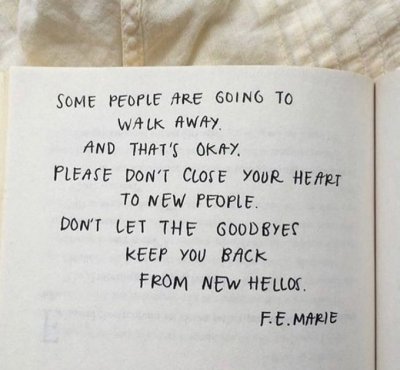 SOME PEOPLE ARE GOING TO
WALK AWAY.
AND THAT'S OKAY.
PLEASE DON'T CLOSE YOUR HEART
TO NEW PEOPLE.
DON'T LET THE GOODBYES
KEEP YOU BACK
FROM NEW HELLOS.
F.E.MARIE